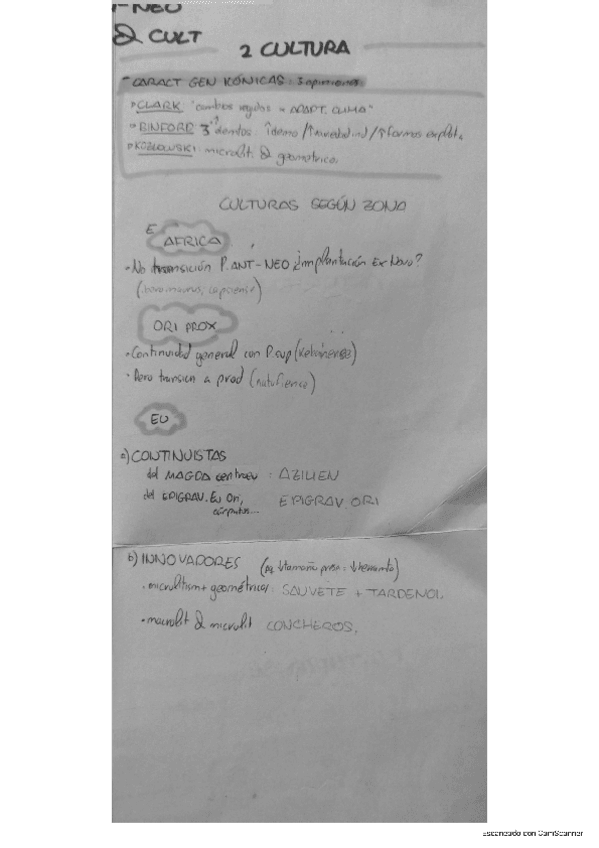 -NEO
& CULT
2 CULTURA
- CARACT GEN ICÓNICAS: 3 opiniones
CLARK: "cambios rápidos = ADAPT. CLIMA"
BINFORD 3 : ↑demo /↑variedad ind/↑formas explot.
KOZLOWSKI: microlit. & geometrico.
CULTURAS SEGÚN ZONA
AFRICA
• No transición P. ANT-NEO ¿implantación Ex Novo?
ORI PROX
• Continuidad general con P. sup (Kebariense)
• Pero transicn a prod (natufiense)
EU
a) CONTINUISTAS
del MAGDA centroeu : AZILIEN
del EPIGRAV. Eu Ori, EPIGRAV. ORI
cárpatos...
b) INNOVADORES (↓tamaño : ↓)
• microlitism + geométricos: SAUVETE + TARDENOI.
• macrolit & microlit CONCHEROS.
Escaneado con CamScanner